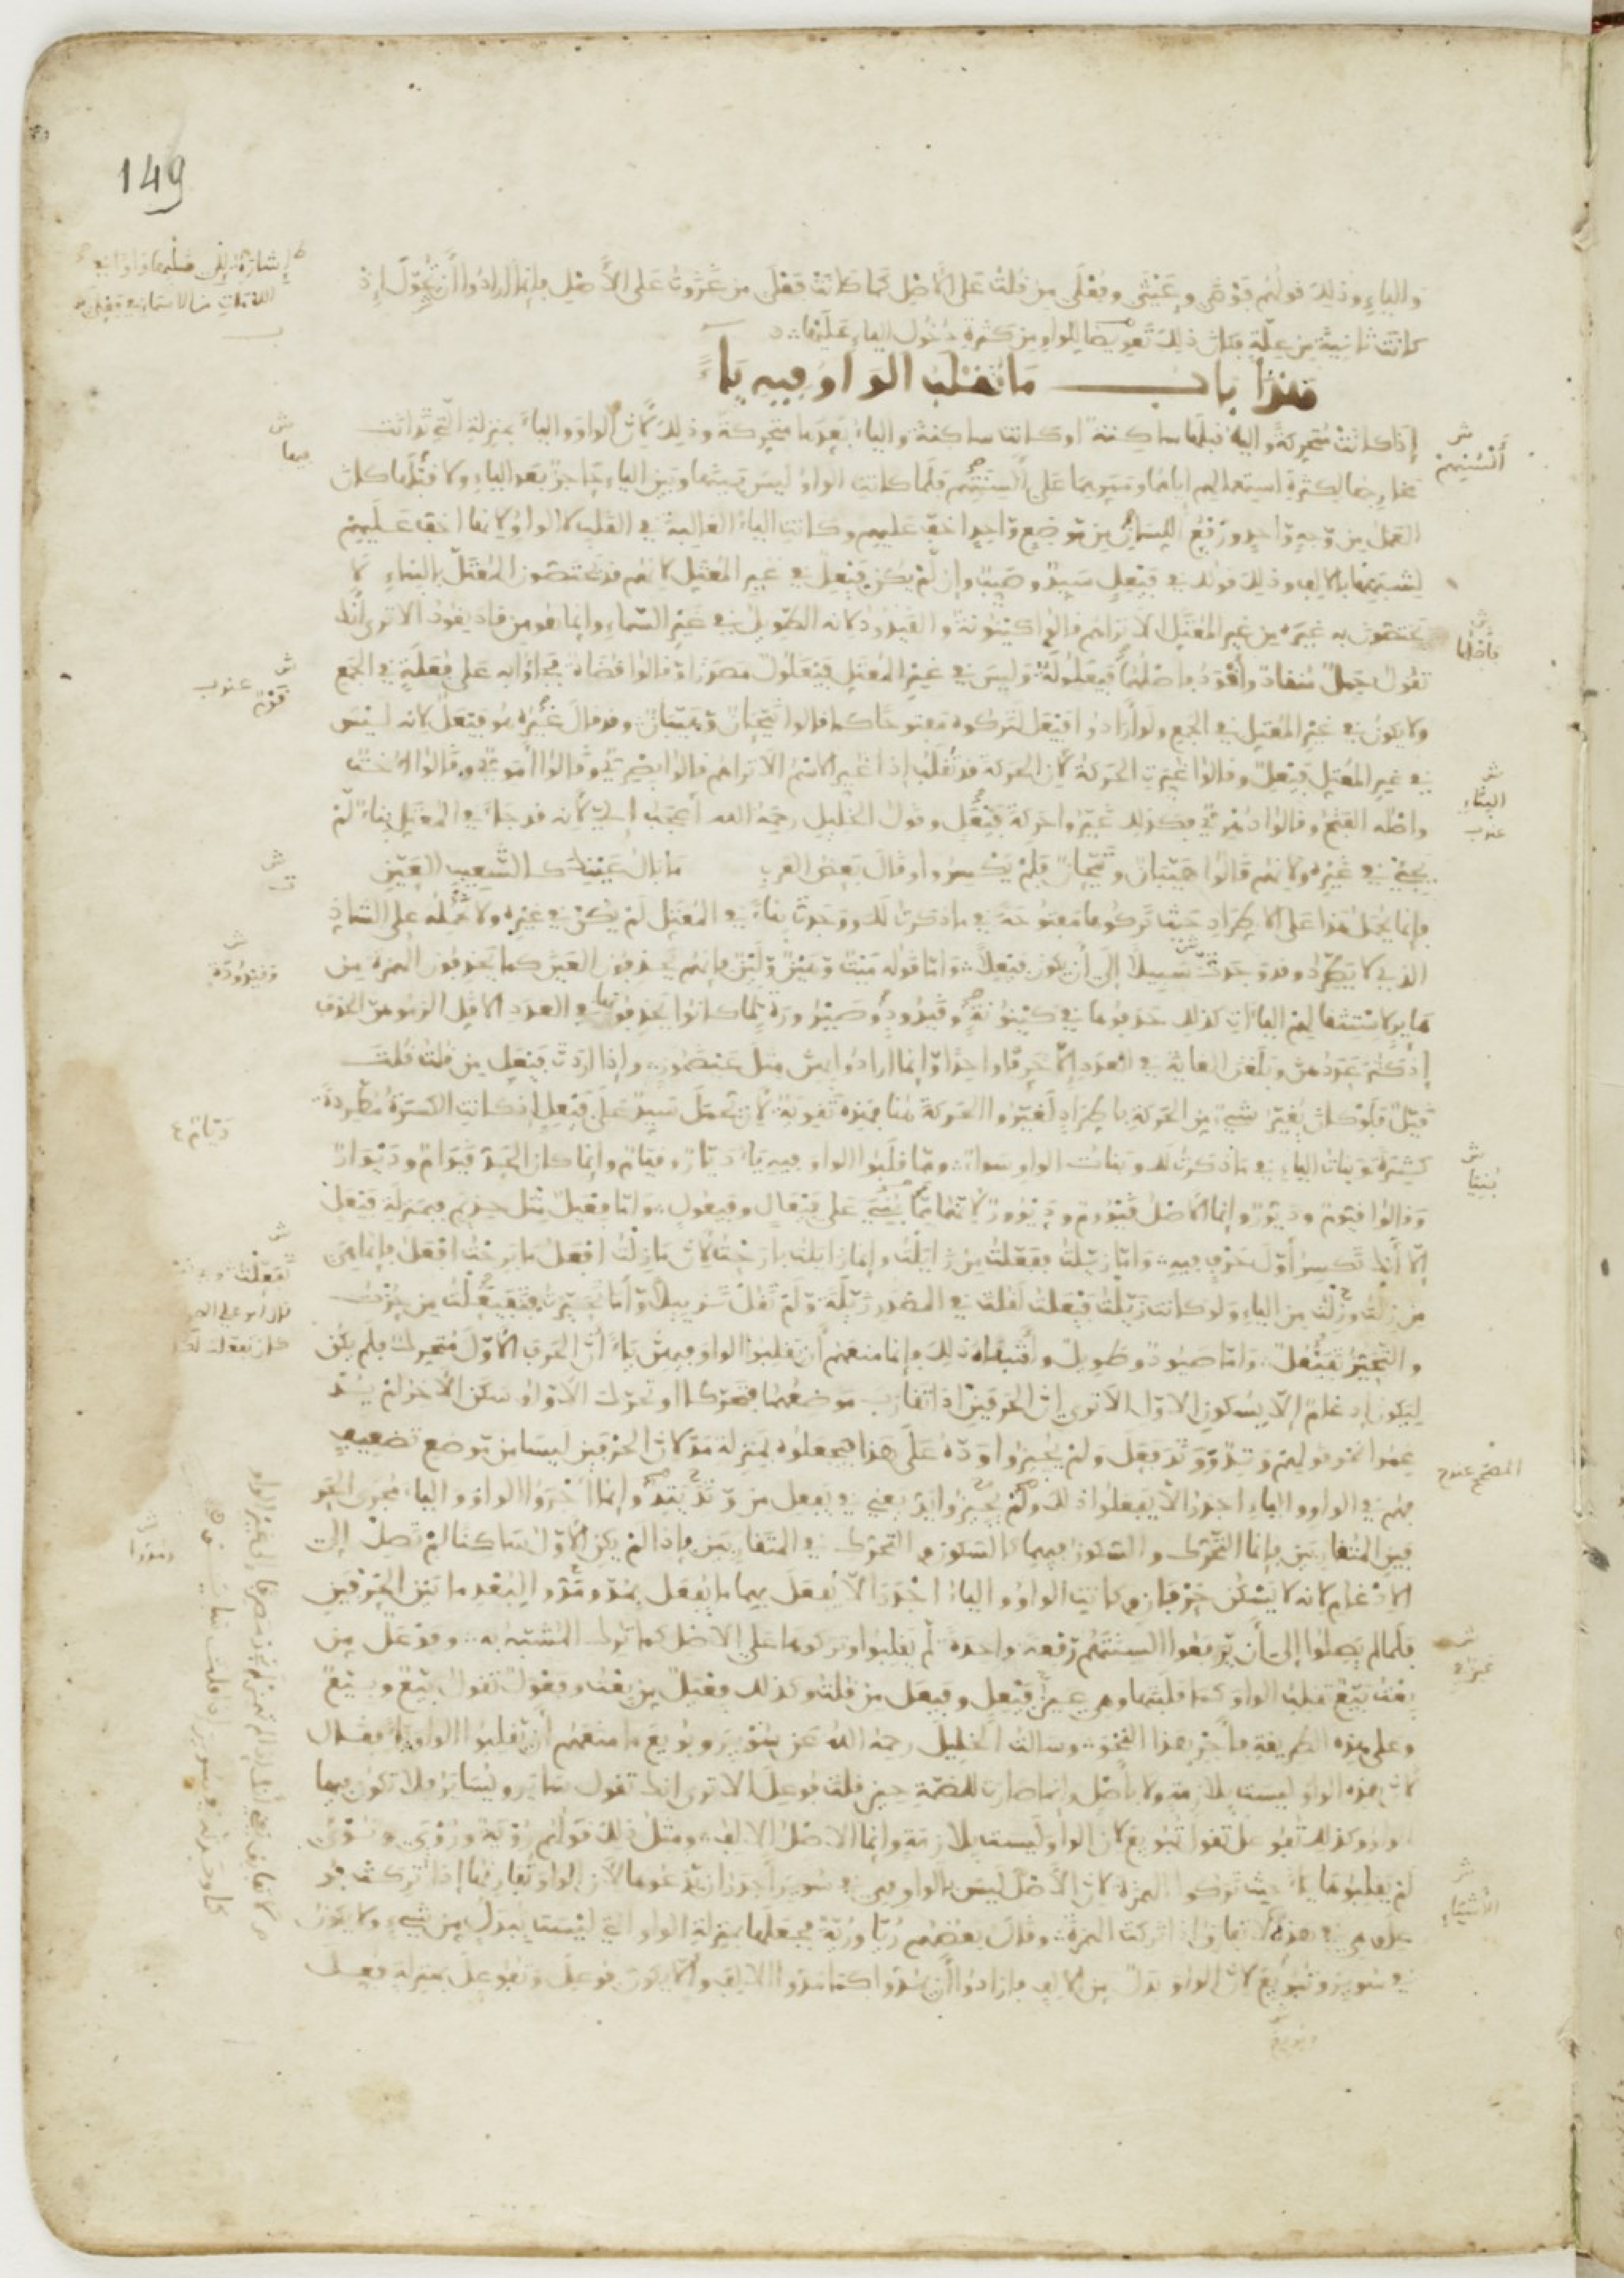 149
والياء وذلك قولهم فوضى وعيثى وفعلى من قلت على الأصل كما كانت فعلى من غزوت على الأصل فإنما أرادوا أن تحول إذ
كانت ثانية من علة فكان ذلك تعويضا للواو من كثرة دخول الياء عليها
هذا باب ما تقلب الواو فيه ياء
إذا كانت متحركة والياء قبلها ساكنة أو كانت ساكنة والياء بعدها متحركة وذلك لأن الواو والياء بمنزلة التي تدانت
مخارجها لكثرة استعمالهم إياهما وممرهما على ألسنتهم فلما كانت الواو ليس بينها وبين الياء حاجز بعد الياء ولا قبلها كان
العمل من وجه واحد ورفع اللسان من موضع واحد أخف عليهم وكانت الياء الغالبة في القلب لا الواو لأنها أخف عليهم
لشبهها بالألف وذلك قولك في فيعل سيد وصيب وإن لم يكن فيعل في غير المعتل لأنهم قد يختصون المعتل بالبناء لا
يختصون به غيره من غير المعتل ألا تراهم قالوا كينونة والقيدود لأنه الطويل في غير السماء وإنما هو من قاد يقود ألا ترى أنك
تقول جمل منقاد وأقود فأصلهما فيعلولة وليس في غير المعتل فيعلول مصدرا وقالوا قضاة فجاؤا به على فعلة في الجمع
ولا يكون في غير المعتل في الجمع ولو أرادوا فيعل لتركوه مفتوحا كما قالوا تيحان وهيبان وقد قال غيره هو فيعل لأنه ليس
في غير المعتل فيعل وقالوا غيرت الحركة لأن الحركة قد تقلب إذا غير الاسم ألا تراهم قالوا بصري وقالوا أموي وقالوا أخت
وأصله الفتح وقالوا دهري فكذلك غيروا حركة فيعل وقول الخليل رحمه الله أعجب إلي لأنه قد جاء في المعتل بناء لم
يجئ في غيره ولأنهم قالوا هيبان وتيحان فلم يكسروا وقال بعض العرب ما بال عيني كالشعيب العين
فإنما يحمل هذا على الاطراد حيث تركوها مفتوحة في ما ذكرت لك ووجدت بناء في المعتل لم يكن في غيره ولا تحمله على الشاذ
الذي لا يطرد وقد وجدت سبيلا إلى أن يكون فيعلا وأما قوله ميت وهين ولين فإنهم يحذفون العين كما يحذفون الهمزة من
هاير لاستثقالهم الياءات كذلك حذفوها في كينونة وقيدود وصيرورة لما كانوا يحذفونها في العدد الأقل ألزموهن الحذف
إذ كثر عددهن وبلغن الغاية في العدد إلا حرفا واحدا وإنما أرادوا بهن مثل عيضموز وإذا أردت فيعل من قلت قلت
قيل فلو كان يغير شيء من الحركة باطراد لغيروا الحركة هنا فهذه تقوية لأن تحمل سيد على فيعل إذ كانت الكسرة مطردة
كثيرة وبنات الياء في ما ذكرت لك وبنات الواو سواء ومما قلبوا الواو فيه ياء ديار وقيام وإنما كان الحد قيوام وديوار
وقالوا قيوم وديور وإنما الأصل قيووم وديوور لأنهما بنيا على فيعال وفيعول وأما فعيل مثل حذيم فبمنزلة فيعل
إلا أنك تكسر أول حرف فيه وأما زيلت ففعلت من زايلت وإنما زايلت بارحت لأن ما زلت أفعل ما برحت أفعل فإنما هي
من زلت وزلت من الياء ولو كانت زيلت فيعلت لقلت في المصدر زيلة ولم تقل تزييلا وأما تحيزت فتفيعلت من حزت
والتحيز تفيعل وأما صيود وطويل وأشباه ذلك فإنما منعهم أن يقلبوا الواو فيهن ياء أن الحرف الأول متحرك فلم يكن
ليكون إدغام إلا بسكون الأول ألا ترى أن الحرفين إذا تقارب موضعهما فتحركا أو تحرك الأول وسكن الآخر لم يد
غموا نحو قولهم وتد ووتد فعل ولم يجيزوا وده على هذا فيجعلوه بمنزلة مد لأن الحرفين ليسا من موضع تضعيف
فهم في الواو والياء أجدر ألا يفعلوا ذلك ولم يجيزوا يد يعني في يفعل من وتد يتد وإنما أجروا الواو والياء مجرى الحر
فين المتقاربين فإنما التحرك والسكون فيهما كالسكون والتحرك في المتقاربين فإذا لم يكن الأول ساكنا لم تصل إلى
الادغام لأنه لا يسكن حرفان وكانت الواو والياء أجدر ألا يفعل بهما ما يفعل بمد ومد لبعد ما بين الحرفين
فلما لم يصلوا إلى أن يرفعوا ألسنتهم رفعة واحدة لم يقلبوا وتركوها على الأصل كما ترك المشبه به وفوعل من
بعت بيع تقلب الواو كما قلبتها وهي عين في فيعل وفيعل من قلت وكذلك فعيل من بعت وفعول تقول بيع وبيع
وعلى هذه الطريقة فأجر هذا النحو وسألت الخليل رحمه الله عن سوير وبويع ما منعهم أن يقلبوا الواو ياء فقال
لأن هذه الواو ليست بلازمة ولا بأصل وإنما صارت للضمة حين قلت فوعل ألا ترى أنك تقول ساير ويساير فلا تكون فيهما
الواو وكذلك تفوعل نحو تبويع لأن الواو ليست بلازمة وإنما الأصل الألف ومثل ذلك قولهم رؤية ورؤيا ونؤي
لم يقلبوها ياء حيث تركوا الهمزة لأن الأصل ليس بالواو فهي في سوير أجدر أن يدعوها لأن الواو تفارقها إذا تركت فو
على وهي في هذه لا تفارق إذا تركت الهمزة وقال بعضهم ريا ورية فجعلها بمنزلة الواو التي ليست ببدل من شيء ولا يكون
في سوير وتبويع لأن الواو بدل من الألف فأرادوا أن يمدوا كما مدوا الألف وألا يكون فوعل وتفوعل بمنزلة فعل
ألسنتهن
فأصلها
البناء
بنيا
غيره
وقيدودة
الأشياء